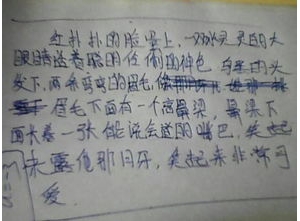 红扑扑的脸蛋上,一双水灵灵的大
眼睛透着聪的伶俐的神色,乌黑的头
发下,两条弯弯的眉毛,
眉毛下面有一个高鼻梁,鼻梁下
面长着一张能说会道的嘴巴,笑起
来露他那月牙,笑起来非常可
爱.